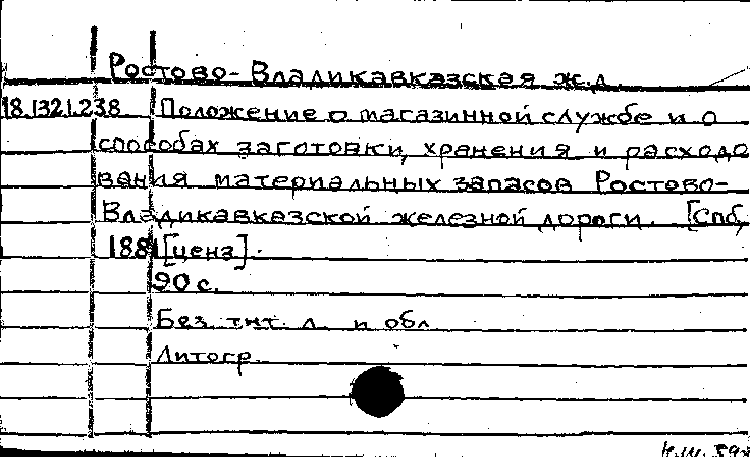 Ростово-Владикавказская ж.д.
18.1321.238 Положение о магазинной службе и о
способах заготовки, хранения и расходо
вания материальных запасов Ростово-
Владикавказской железной дороги. [Спб,
1881[ценз].
90 с.
Без тит. л. и обл
Литогр.